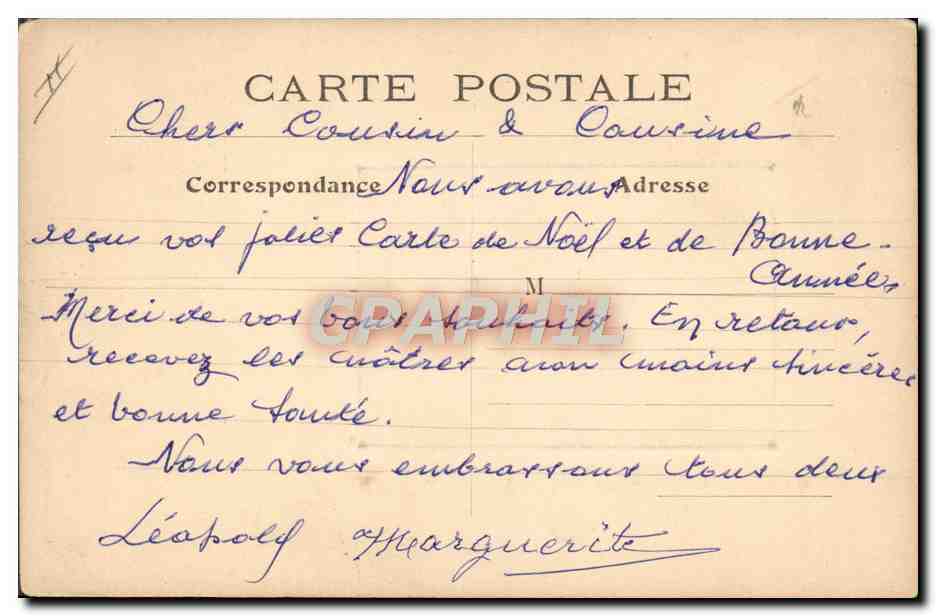 CARTE POSTALE
Chers Cousin & Cousine
Correspondance Nous avons Adresse
reçu vos jolies Carte de Noël et de Bonne
Année
M
CPAPHIL
Merci de vos bons souhaits. En retour,
recevez les nôtres non moins sincères
et bonne santé.
Nous vous embrassons tous deux
Léopold Marguerite